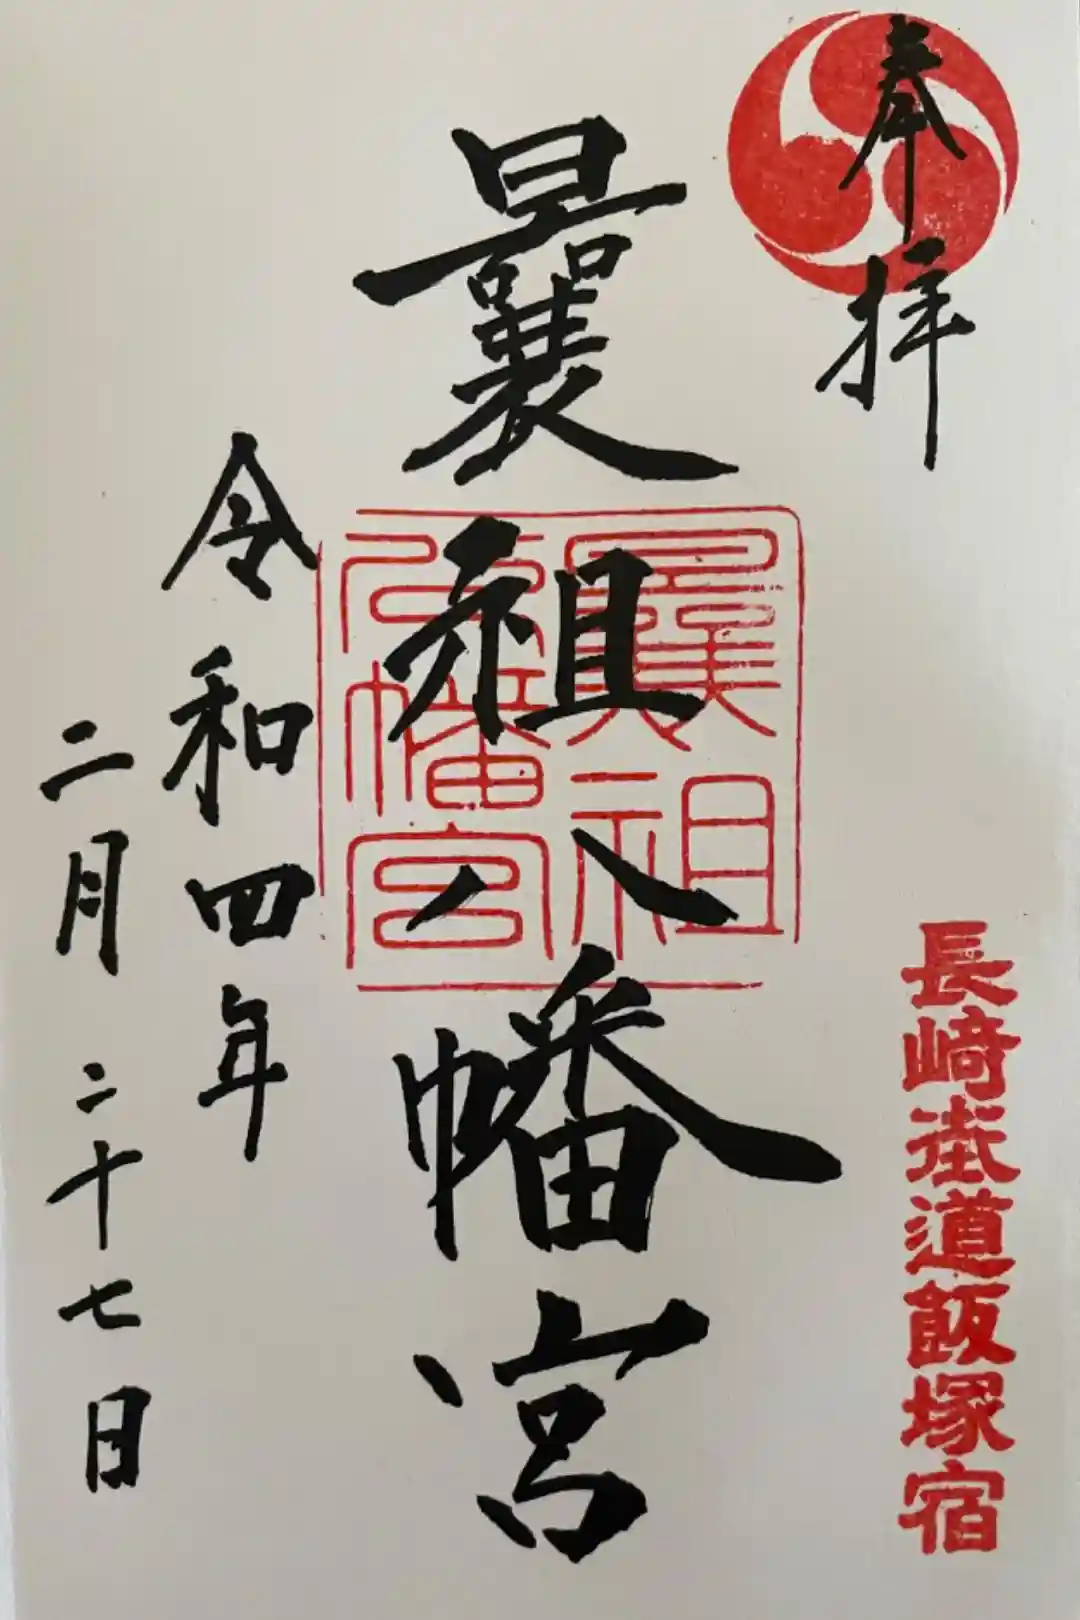 奉拝
長崎街道飯塚宿
曩祖八幡宮
曩祖
八幡宮
令和四年
二月二十七日